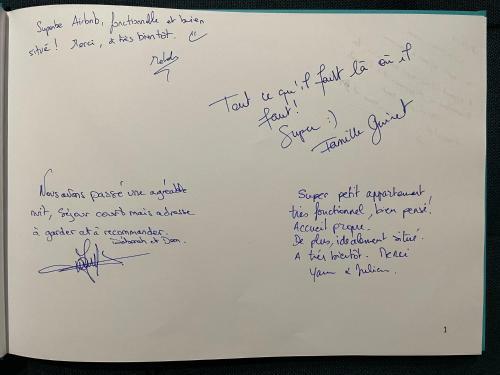 Superbe Airbnb, fonctionnelle et bien
situé ! Merci, à très bientôt.
Tout ce qu'il faut là où il
faut !
Super :)
Famille Guinet
Nous avons passé une agréable
nuit, séjour court mais adresse
à garder et à recommander.
Deborah et Dom.
Super petit appartement
très fonctionnel, bien pensé !
Accueil propre.
De plus, idéalement situé.
A très bientôt. Merci
Yann & Julien.
1